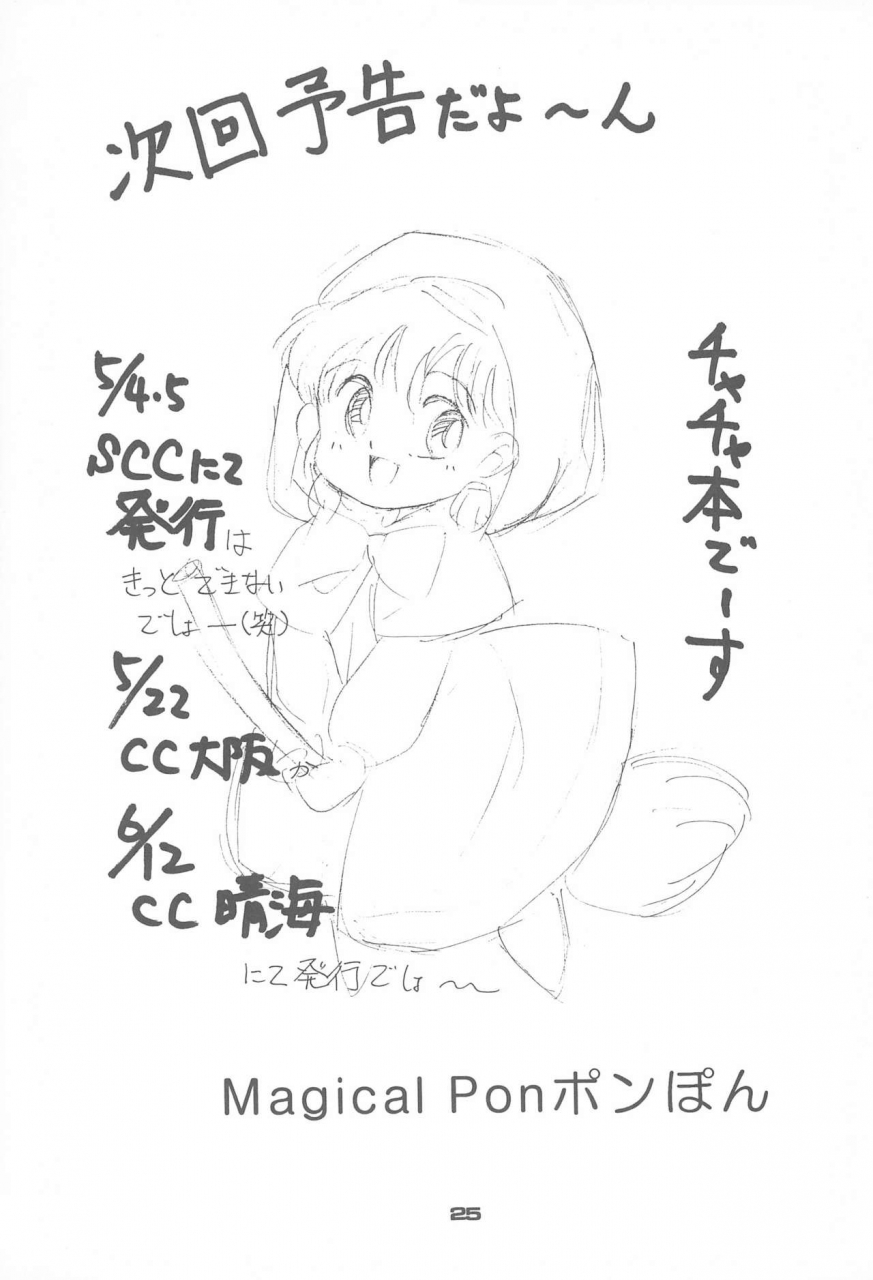 次回予告だよ～ん
チャチャ本でーす
5/4.5
SCCにて
発行は
きっとできない
では―(笑)
5/22
CC大阪か
6/12
CC晴海
にて発行では～
Magical Ponポンぽん
25